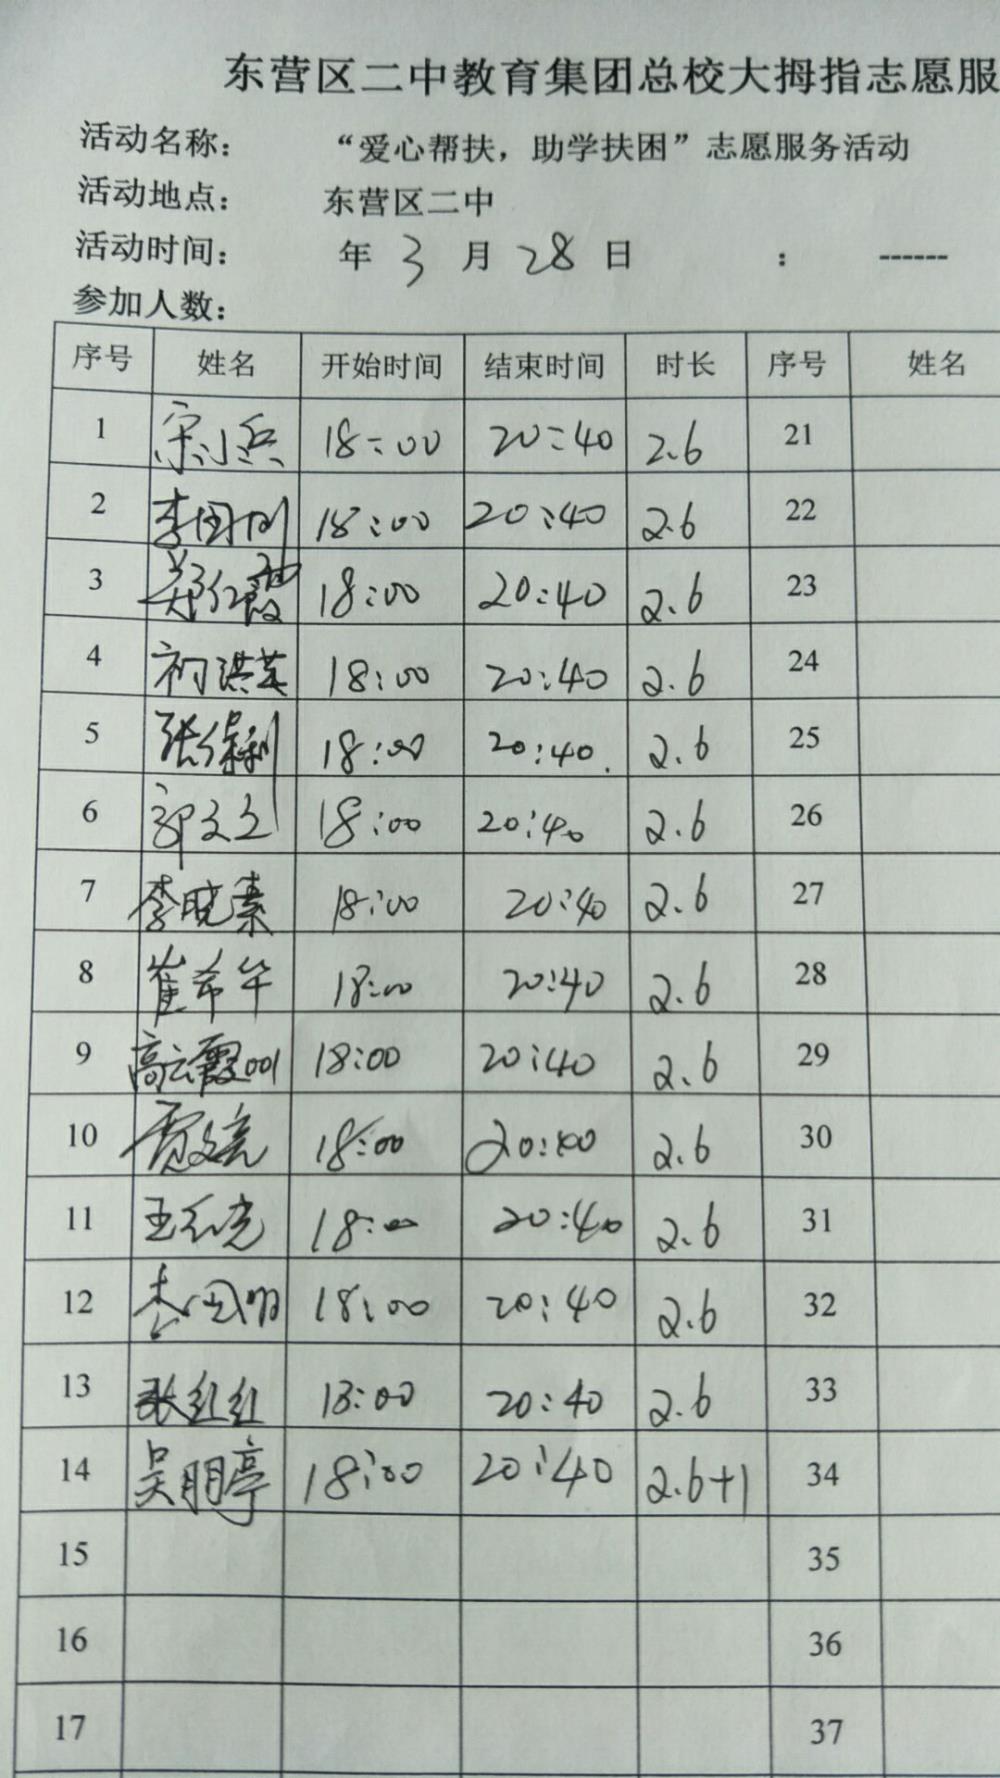 东营区二中教育集团总校大拇指志愿服
活动名称： “爱心帮扶，助学扶困”志愿服务活动
活动地点： 东营区二中
活动时间： 年 3 月 28 日 : ------
参加人数：
序号 姓名 开始时间 结束时间 时长 序号 姓名
1 宋小兵 18:00 20:40 2.6 21
2 李国刚 18:00 20:40 2.6 22
3 郑红霞 18:00 20:40 2.6 23
4 初洪英 18:00 20:40 2.6 24
5 张保利 18:00 20:40. 2.6 25
6 郭文立 18:00 20:40 2.6 26
7 李晓素 18:00 20:40 2.6 27
8 崔希华 18:00 20:40 2.6 28
9 高云霞001 18:00 20:40 2.6 29
10 贾文亮 18:00 2.6 30
11 王红光 18:00 20:40 2.6 31
12 李国明 18:00 20:40 2.6 32
13 张红红 18:00 20:40 2.6 33
14 吴朋亭 18:00 20:40 2.6+1 34
15 35
16 36
17 37